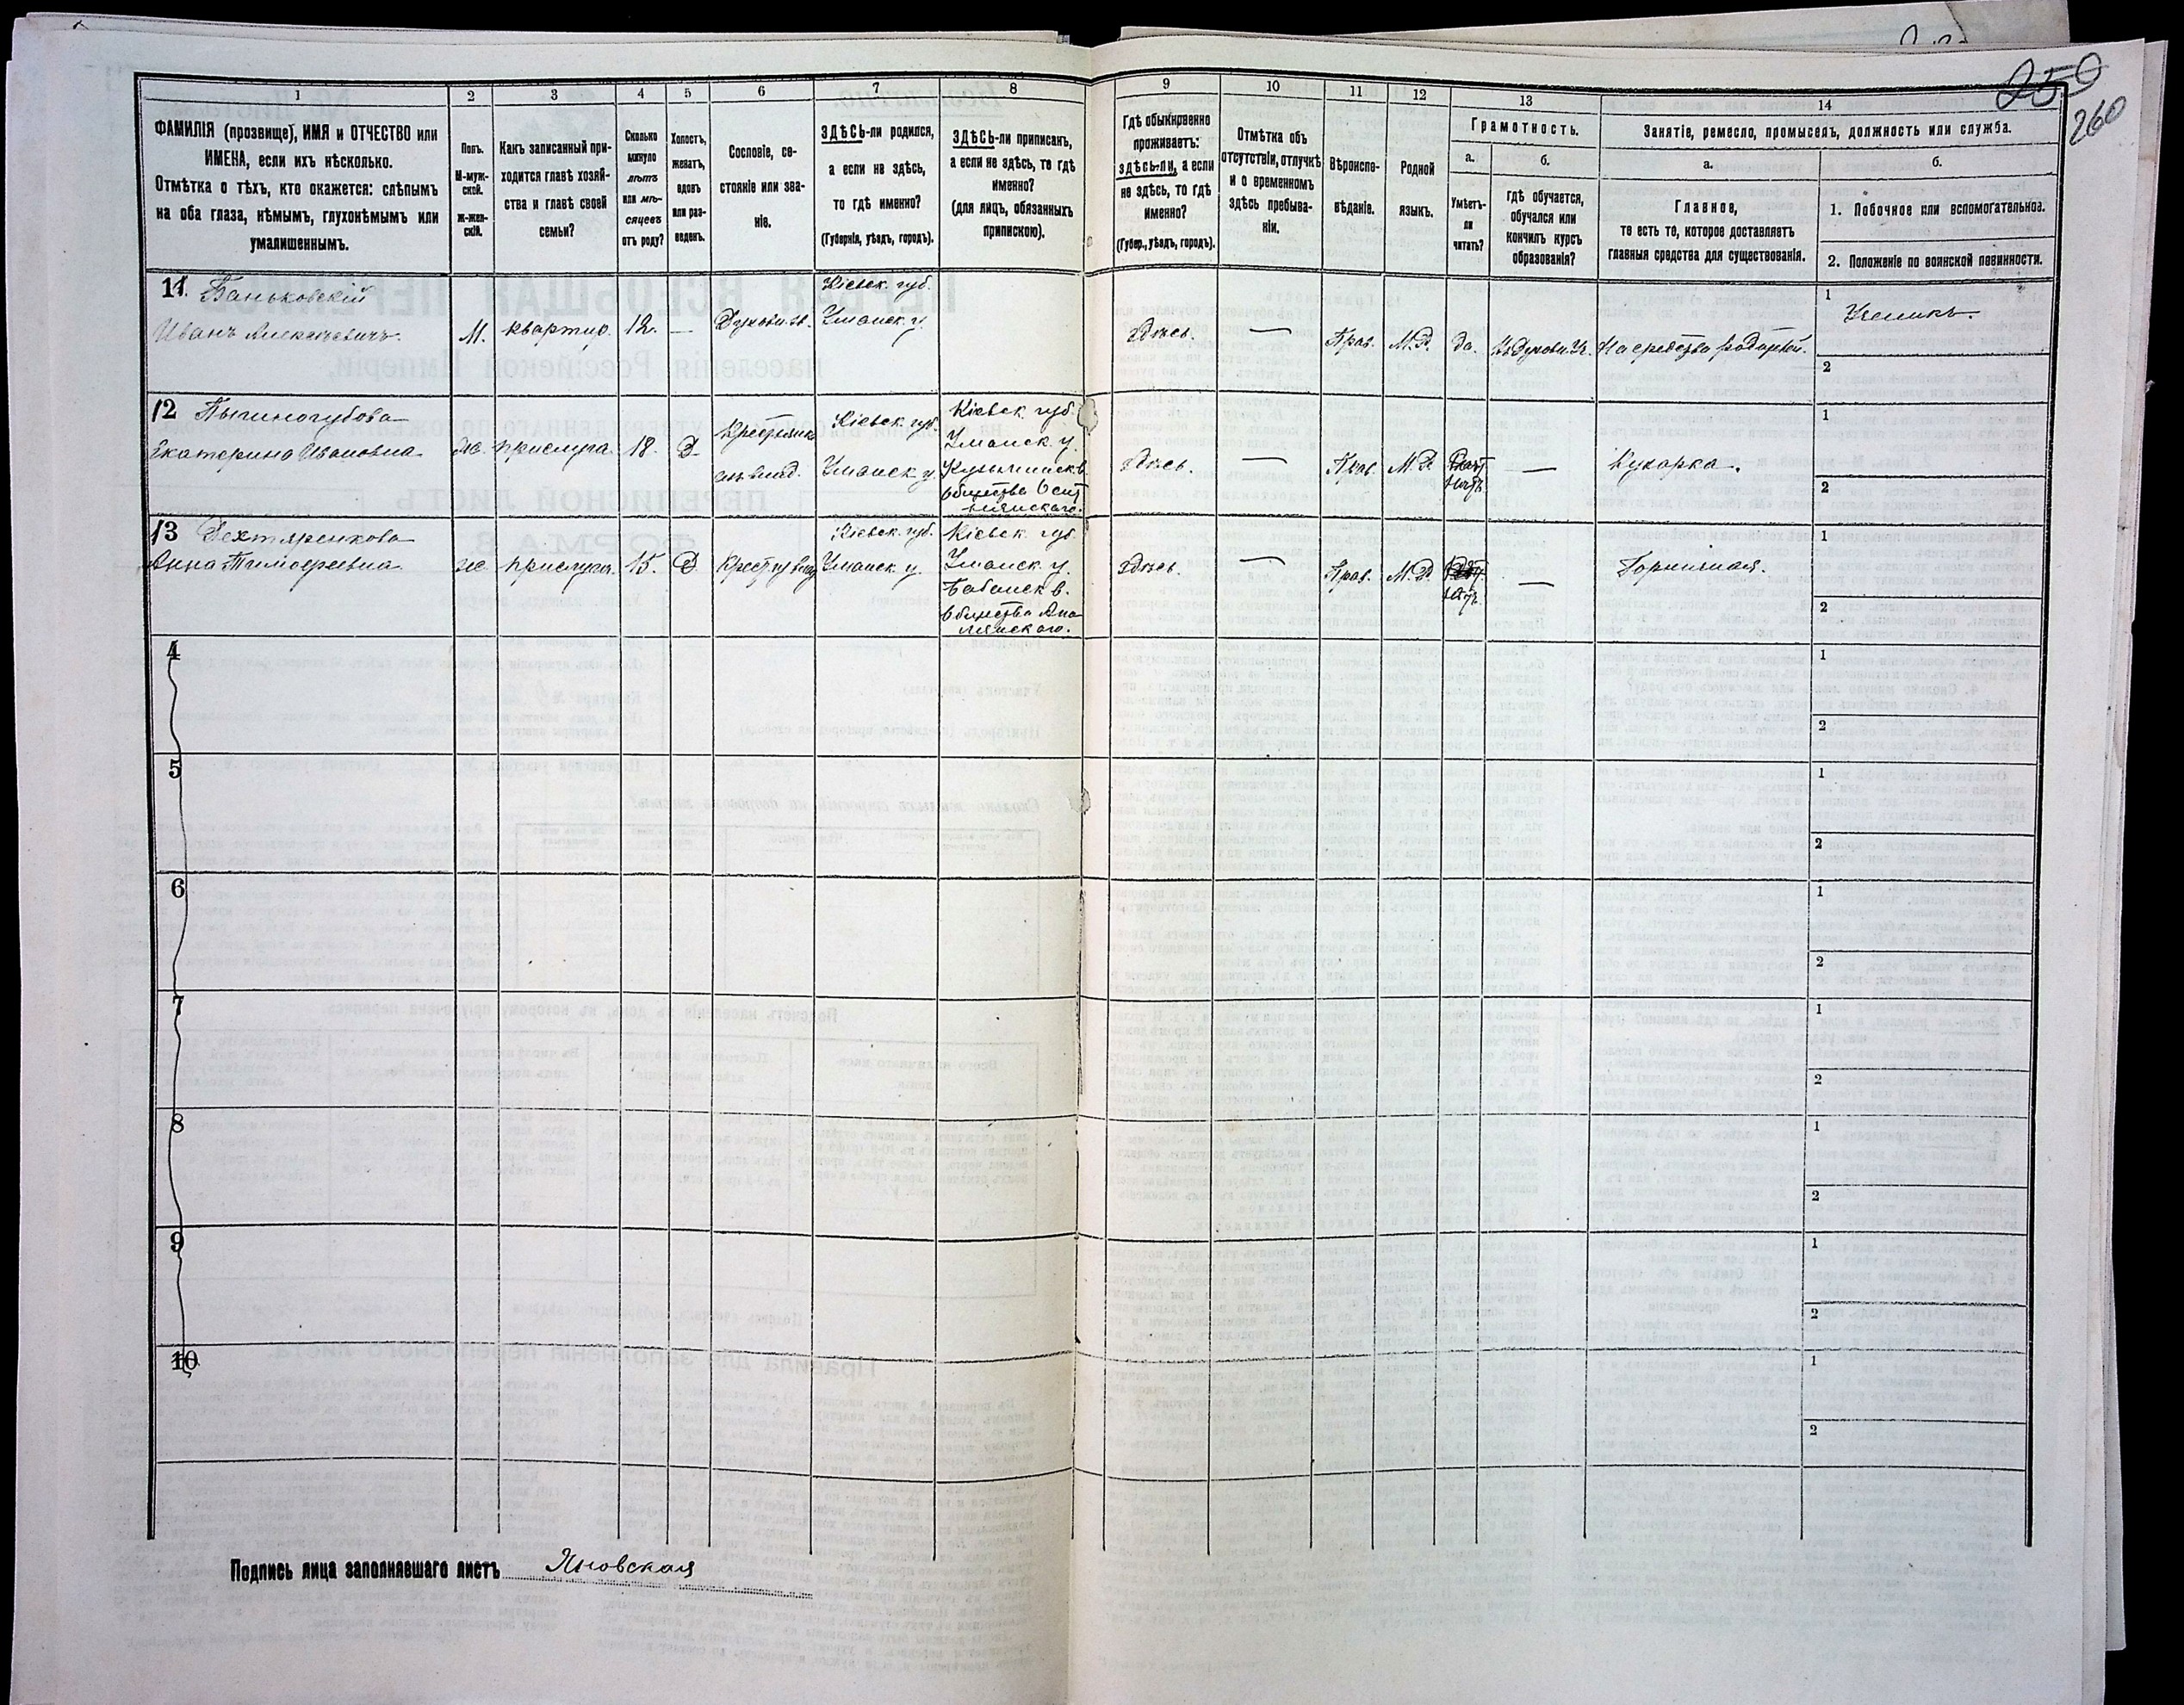 250
260
1
2
3
4
5
6
7
8
9
10
11
12
13
14
ФАМИЛІЯ (прозвище), ИМЯ и ОТЧЕСТВО или
ИМЕНА, если ихъ нѣсколько.
Отмѣтка о тѣхъ, кто окажется: слѣпымъ
на оба глаза, нѣмымъ, глухонѣмымъ или
умалишеннымъ.
Полъ.
М-муж-
ской.
ж-жен-
скій.
Какъ записанный при-
ходится главѣ хозяй-
ства и главѣ своей
семьи?
Сколько
минуло
лѣтъ
или мѣ-
сяцевъ
отъ роду?
Холостъ,
женатъ,
вдовъ
или раз-
веденъ.
Сословіе, со-
стояніе или зва-
ніе.
ЗДѢСЬ-ли родился,
а если не здѣсь,
то гдѣ именно?
(Губернія, уѣздъ, городъ).
ЗДѢСЬ-ли приписанъ,
а если не здѣсь, то гдѣ
именно?
(для лицъ, обязанныхъ
припискою).
Гдѣ обыкновенно
проживаетъ:
здѣсь-ли, а если
не здѣсь, то гдѣ
именно?
(Губер., уѣздъ, городъ).
Отмѣтка объ
отсутствіи, отлучкѣ
и о временномъ
здѣсь пребыва-
ніи.
Вѣроиспо-
вѣданіе.
Родной
языкъ.
Грамотность.
а.
Умѣетъ-
ли
читать?
б.
Гдѣ обучается,
обучался или
кончилъ курсъ
образованія?
Занятіе, ремесло, промыселъ, должность или служба.
а.
Главное,
то есть то, которое доставляетъ
главныя средства для существованія.
б.
1. Побочное или вспомогательное.
2. Положеніе по воинской повинности.
11. Баньковскій
Иванъ Алексѣевичъ
М.
квартир.
12.
—
Духовн. зв.
Кіевск. губ.
Уманск. у.
здѣсь.
—
Прав.
М.Р.
да.
Въ Духовн. Уч.
На средства родителей.
1
Ученикъ.
2
12
Екатерина Ивановна
ж.
прислуга.
18.
Д.
Кіевск. губ.
Уманск. у.
Кіевск. губ.
Уманск. у.
общества
здѣсь.
—
Прав.
М.Р.
нѣтъ
—
Кухарка.
1
2
13 Дехтяренкова
Анна Тимофеевна
ж.
прислуга.
15.
Д.
Кіевск. губ.
Уманск. у.
Кіевск. губ.
Уманск. у.
Бабанск. в.
общества
здѣсь.
—
Прав.
М.Р.
нѣтъ.
—
Горничная.
1
2
4
1
2
5
1
2
6
1
2
7
1
2
8
1
2
9
1
2
10
1
2
Подпись лица заполнявшаго листъ Яновская